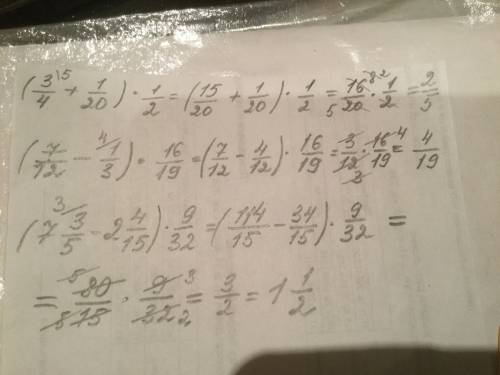 (3/4 \5 + 1/20) · 1/2 = (15/20 + 1/20) · 1/2 = 16/20 5 8 2 · 1/2 = 2/5
(7/12 - 4 1/3) · 16/19 = (7/12 - 4/12) · 16/19 = 3/12 3 · 16/19 4 = 4/19
(7 3/5 3 - 2 4/15) · 9/32 = (114/15 - 34/15) · 9/32 =
= 80/15 5 5 · 9/32 3 2 = 3/2 = 1 1/2